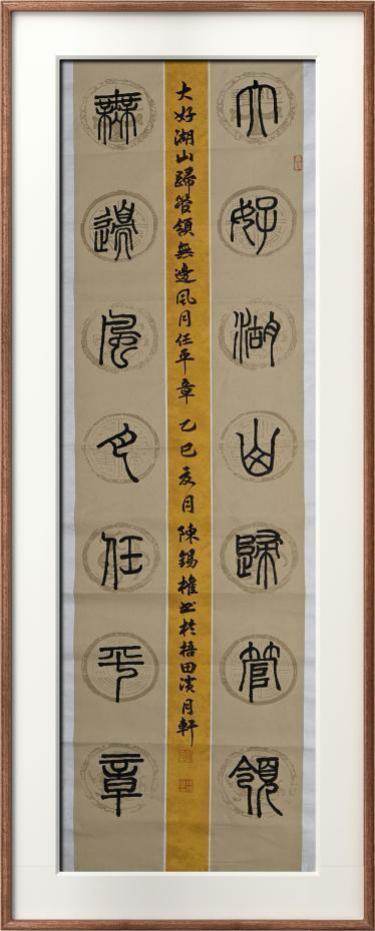 大好湖山歸管領
大好湖山歸管領無邊風月任平章 乙巳亥月 陳錫權書於梧田濱月軒
無邊風月任平章